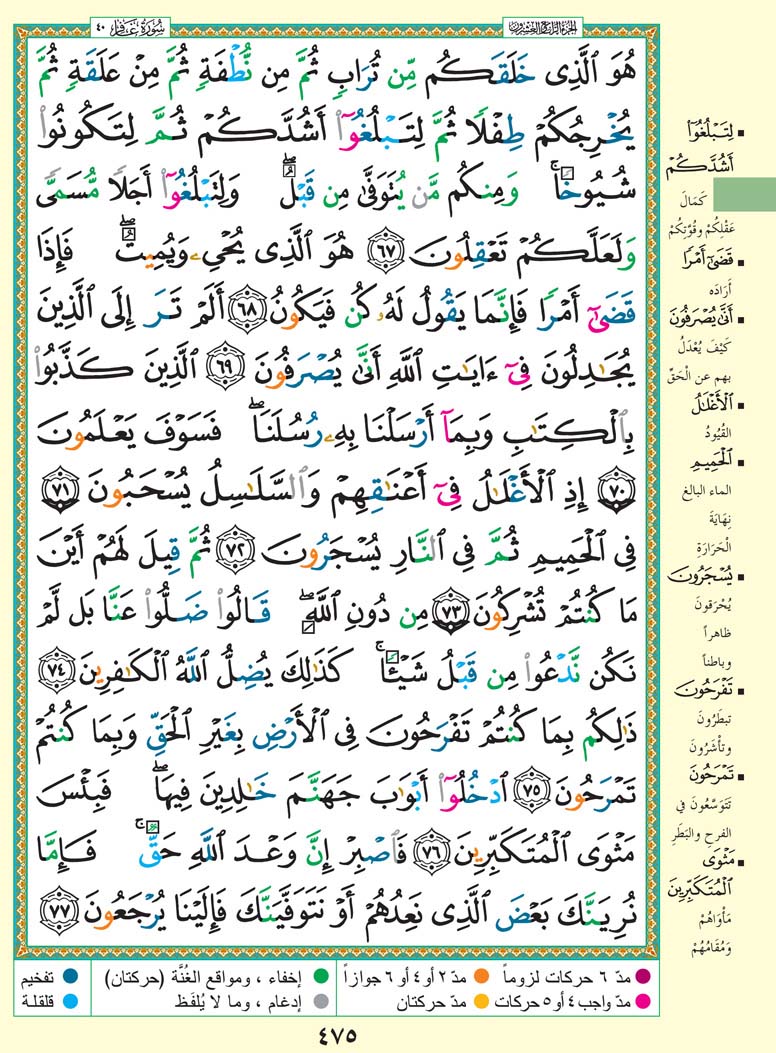 سُورَةُ غَافِرٍ ٤٠
الجزء الرابع والعشرون
هُوَ الَّذِى خَلَقَكُم مِّن تُرَابٍ ثُمَّ مِن نُّطْفَةٍ ثُمَّ مِنْ عَلَقَةٍ ثُمَّ
يُخْرِجُكُمْ طِفْلًا ثُمَّ لِتَبْلُغُوٓا۟ أَشُدَّكُمْ ثُمَّ لِتَكُونُوا۟
شُيُوخًا ۚ وَمِنكُم مَّن يُتَوَفَّىٰ مِن قَبْلُ ۖ وَلِتَبْلُغُوٓا۟ أَجَلًا مُّسَمًّى
وَلَعَلَّكُمْ تَعْقِلُونَ ﴿٦٧﴾ هُوَ الَّذِى يُحْىِۦ وَيُمِيتُ ۖ فَإِذَا
قَضَىٰٓ أَمْرًا فَإِنَّمَا يَقُولُ لَهُۥ كُن فَيَكُونُ ﴿٦٨﴾ أَلَمْ تَرَ إِلَى الَّذِينَ
يُجَٰدِلُونَ فِىٓ ءَايَٰتِ اللَّهِ أَنَّىٰ يُصْرَفُونَ ﴿٦٩﴾ الَّذِينَ كَذَّبُوا۟
بِالْكِتَٰبِ وَبِمَآ أَرْسَلْنَا بِهِۦ رُسُلَنَا ۖ فَسَوْفَ يَعْلَمُونَ
﴿٧٠﴾ إِذِ الْأَغْلَٰلُ فِىٓ أَعْنَٰقِهِمْ وَالسَّلَٰسِلُ يُسْحَبُونَ ﴿٧١﴾
فِى الْحَمِيمِ ثُمَّ فِى النَّارِ يُسْجَرُونَ ﴿٧٢﴾ ثُمَّ قِيلَ لَهُمْ أَيْنَ
مَا كُنتُمْ تُشْرِكُونَ ﴿٧٣﴾ مِن دُونِ اللَّهِ ۖ قَالُوا۟ ضَلُّوا۟ عَنَّا بَل لَّمْ
نَكُن نَّدْعُوا۟ مِن قَبْلُ شَيْـًٔا ۚ كَذَٰلِكَ يُضِلُّ اللَّهُ الْكَٰفِرِينَ ﴿٧٤﴾
ذَٰلِكُم بِمَا كُنتُمْ تَفْرَحُونَ فِى الْأَرْضِ بِغَيْرِ الْحَقِّ وَبِمَا كُنتُمْ
تَمْرَحُونَ ﴿٧٥﴾ ادْخُلُوٓا۟ أَبْوَٰبَ جَهَنَّمَ خَٰلِدِينَ فِيهَا ۖ فَبِئْسَ
مَثْوَى الْمُتَكَبِّرِينَ ﴿٧٦﴾ فَاصْبِرْ إِنَّ وَعْدَ اللَّهِ حَقٌّ ۚ فَإِمَّا
نُرِيَنَّكَ بَعْضَ الَّذِى نَعِدُهُمْ أَوْ نَتَوَفَّيَنَّكَ فَإِلَيْنَا يُرْجَعُونَ ﴿٧٧﴾
▪ لِتَبْلُغُوٓا۟
أَشُدَّكُمْ
كَمَالَ
عَقْلِكُمْ وقُوَّتِكُمْ
▪ قَضَىٰٓ أَمْرًا
أَرَادَه
▪ أَنَّىٰ يُصْرَفُونَ
كَيْفَ يُعْدَلُ
بهم عن الْحَقِّ
▪ الْأَغْلَٰلُ
القُيُودُ
▪ الْحَمِيمِ
الماء البالِغِ
نِهَايَةَ
الْحَرَارَةِ
▪ يُسْجَرُونَ
يُحْرَقونَ
ظاهراً
وباطناً
▪ تَفْرَحُونَ
تبطَرُونَ
وتأشَرُونَ
▪ تَمْرَحُونَ
تَتَوَسَّعُونَ فِي
الفرحِ والبَطَرِ
▪ مَثْوَى
الْمُتَكَبِّرِينَ
مَأْوَاهُمْ
وَمُقَامُهُمْ
مدّ ٦ حركات لزوماً
مدّ ٢ أو ٤ أو ٦ جوازاً
إخفاء ، ومواقع الغُنَّة (حركتان)
تفخيم
مدّ واجب ٤ أو ٥ حركات
مدّ حركتان
إدغام ، وما لا يُلفَظ
قلقلة
٤٧٥